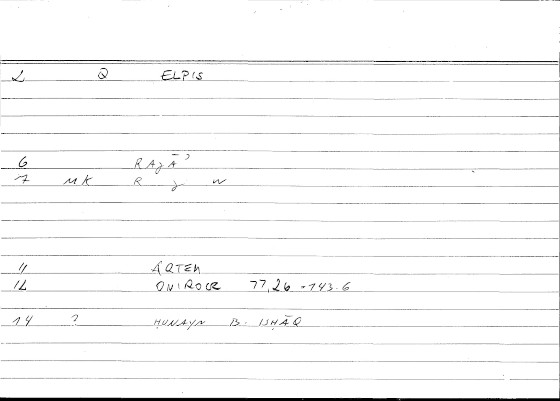 2 Q ELPIS
6 RAJĀʾ
7 MK R J W
11 ARTEM
12 ONIROCR 77,26 - 143.6
14 ? ḤUNAYN B. ISḤĀQ